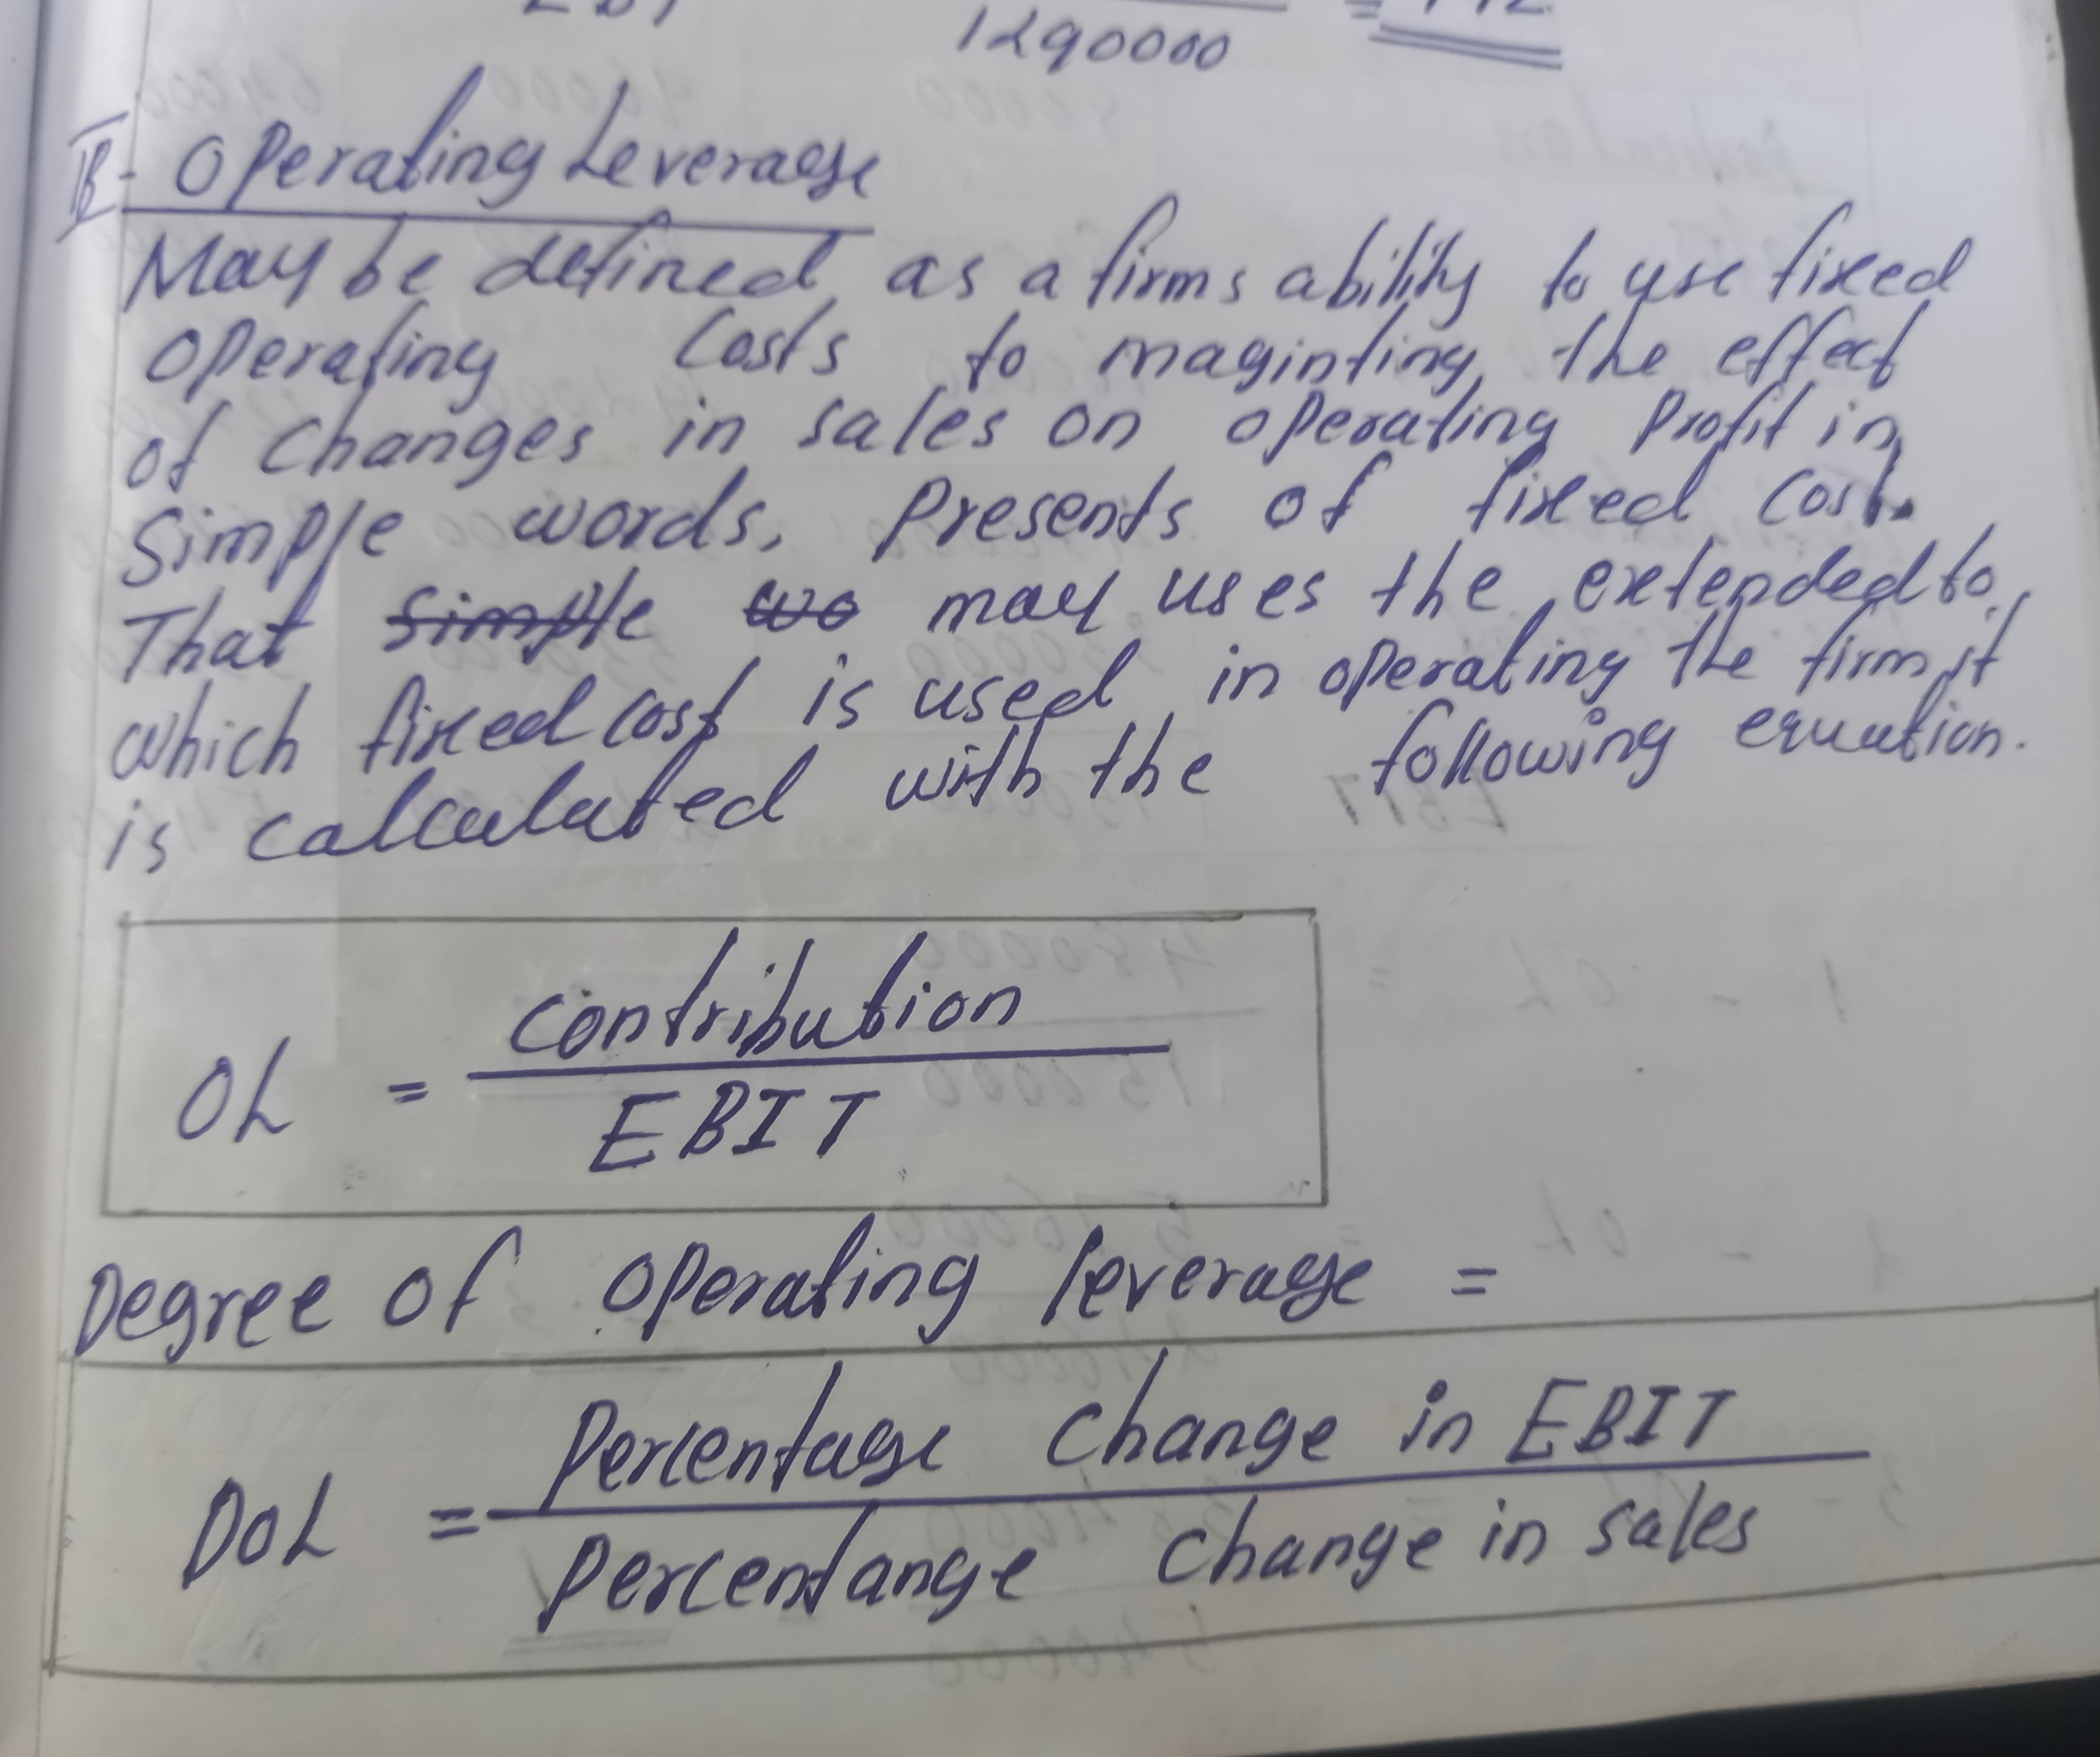 1290000
B- Operating Leverage
May be defined as a firms ability to use fixed
operating costs to maginting the effect
of changes in sales on operating profit in
simple words, presents of fixed cost.
That simple wo may uses the extended to
which fixed cost is used in operating the firm it
is calculated with the following equation.
OL = contribution
EBIT
Degree of operating leverage =
DOL = Percentage change in EBIT
percentange change in sales